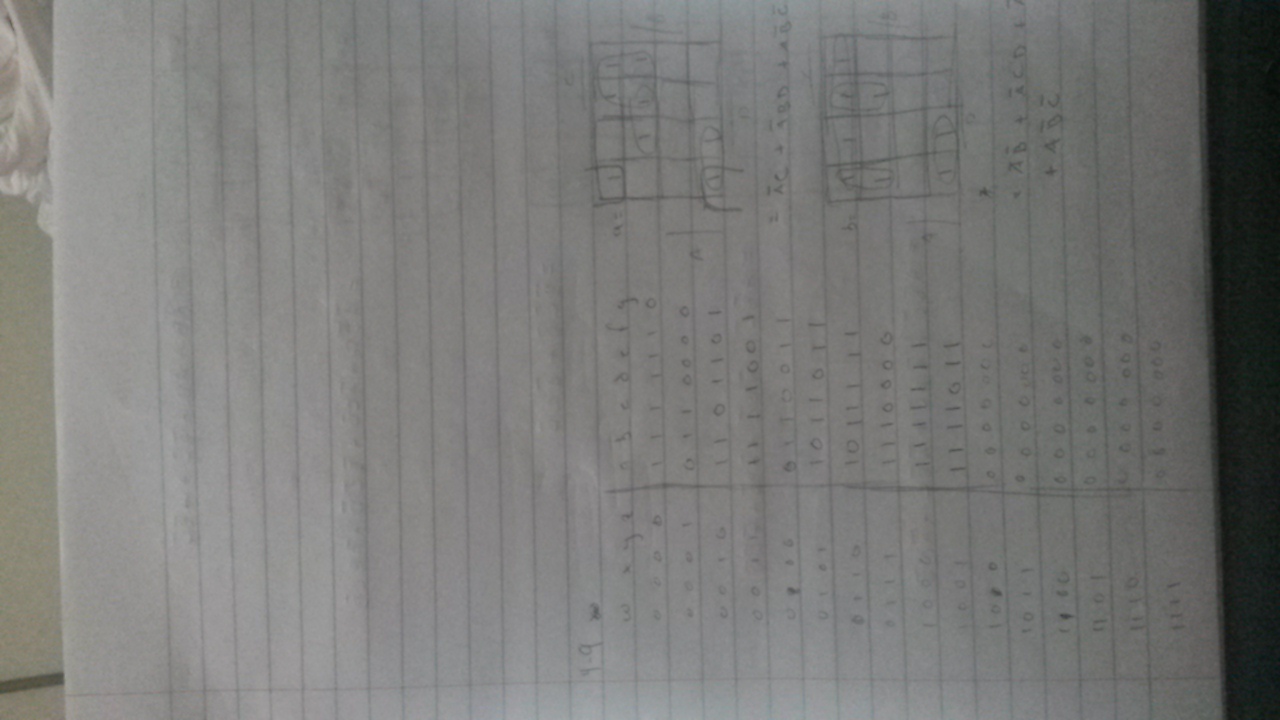 4-9
w x y z a b c d e f g
0 0 0 0 1 1 1 1 1 1 0
0 0 0 1 0 1 1 0 0 0 0
0 0 1 0 1 1 0 1 1 0 1
0 0 1 1 1 1 1 1 0 0 1
0 1 0 0 0 1 1 0 0 1 1
0 1 0 1 1 0 1 1 0 1 1
0 1 1 0 1 0 1 1 1 1 1
0 1 1 1 1 1 1 0 0 0 0
1 0 0 0 1 1 1 1 1 1 1
1 0 0 1 1 1 1 1 0 1 1
1 0 1 0 0 0 0 0 0 0 0
1 0 1 1 0 0 0 0 0 0 0
1 1 0 0 0 0 0 0 0 0 0
1 1 0 1 0 0 0 0 0 0 0
1 1 1 0 0 0 0 0 0 0 0
1 1 1 1 0 0 0 0 0 0 0
a= C
1 1 1
1 1 1 B
A
1 1
D
= A̅C + A̅BD + AB̅C̅
b= C
1 1 1 1
1 1 B
A
1 1
D
= A̅B̅ + A̅CD +
+ AB̅C̅